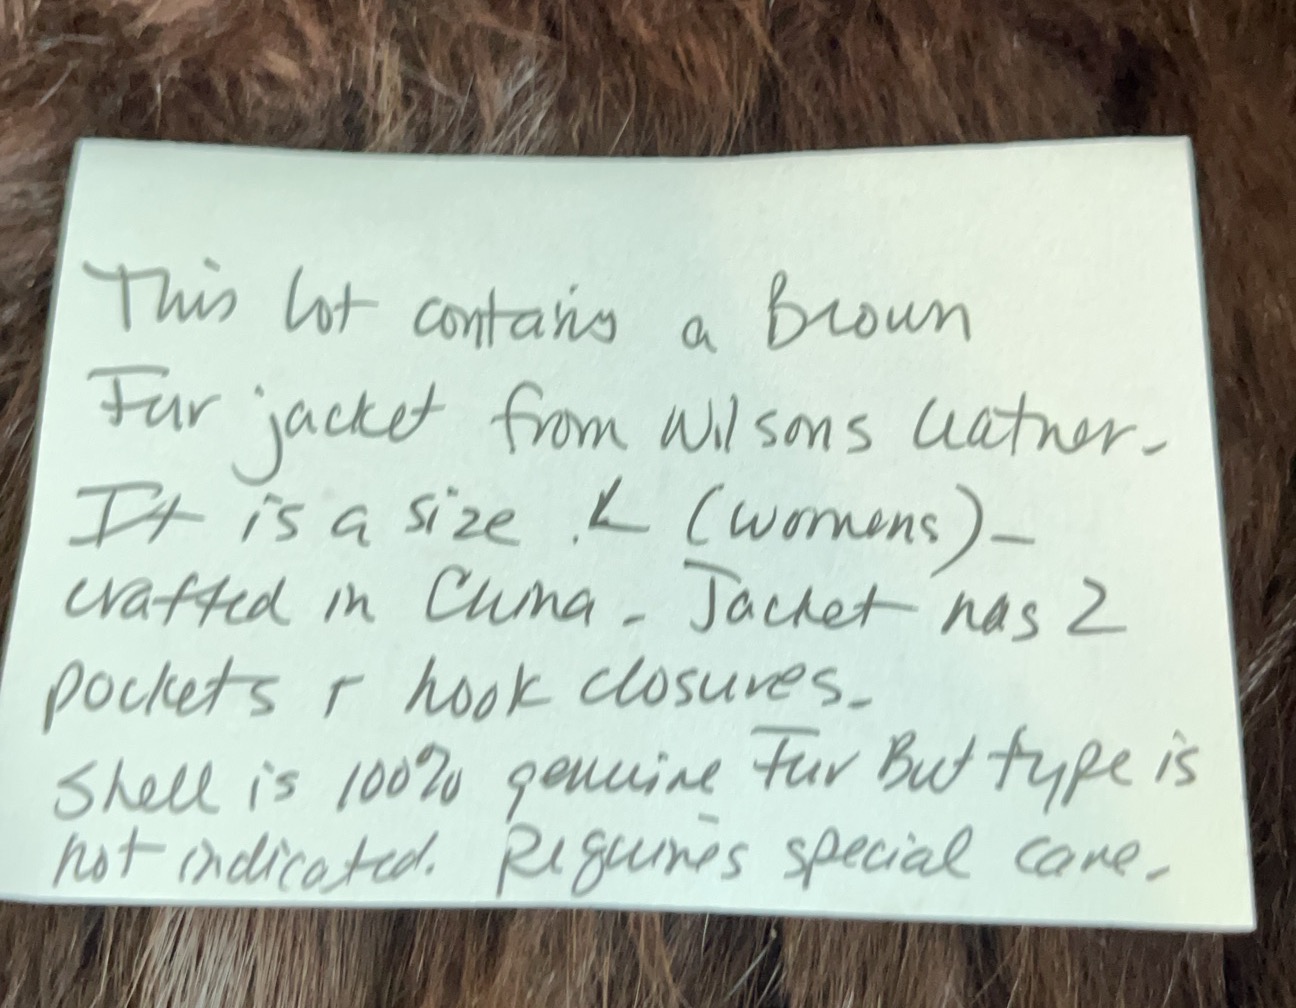 This lot contains a Brown
Fur jacket from Wilsons Leather.
It is a size L (womens) -
crafted in China. Jacket has 2
pockets + hook closures.
Shell is 100% genuine Fur But type is
not indicated. Requires special care.